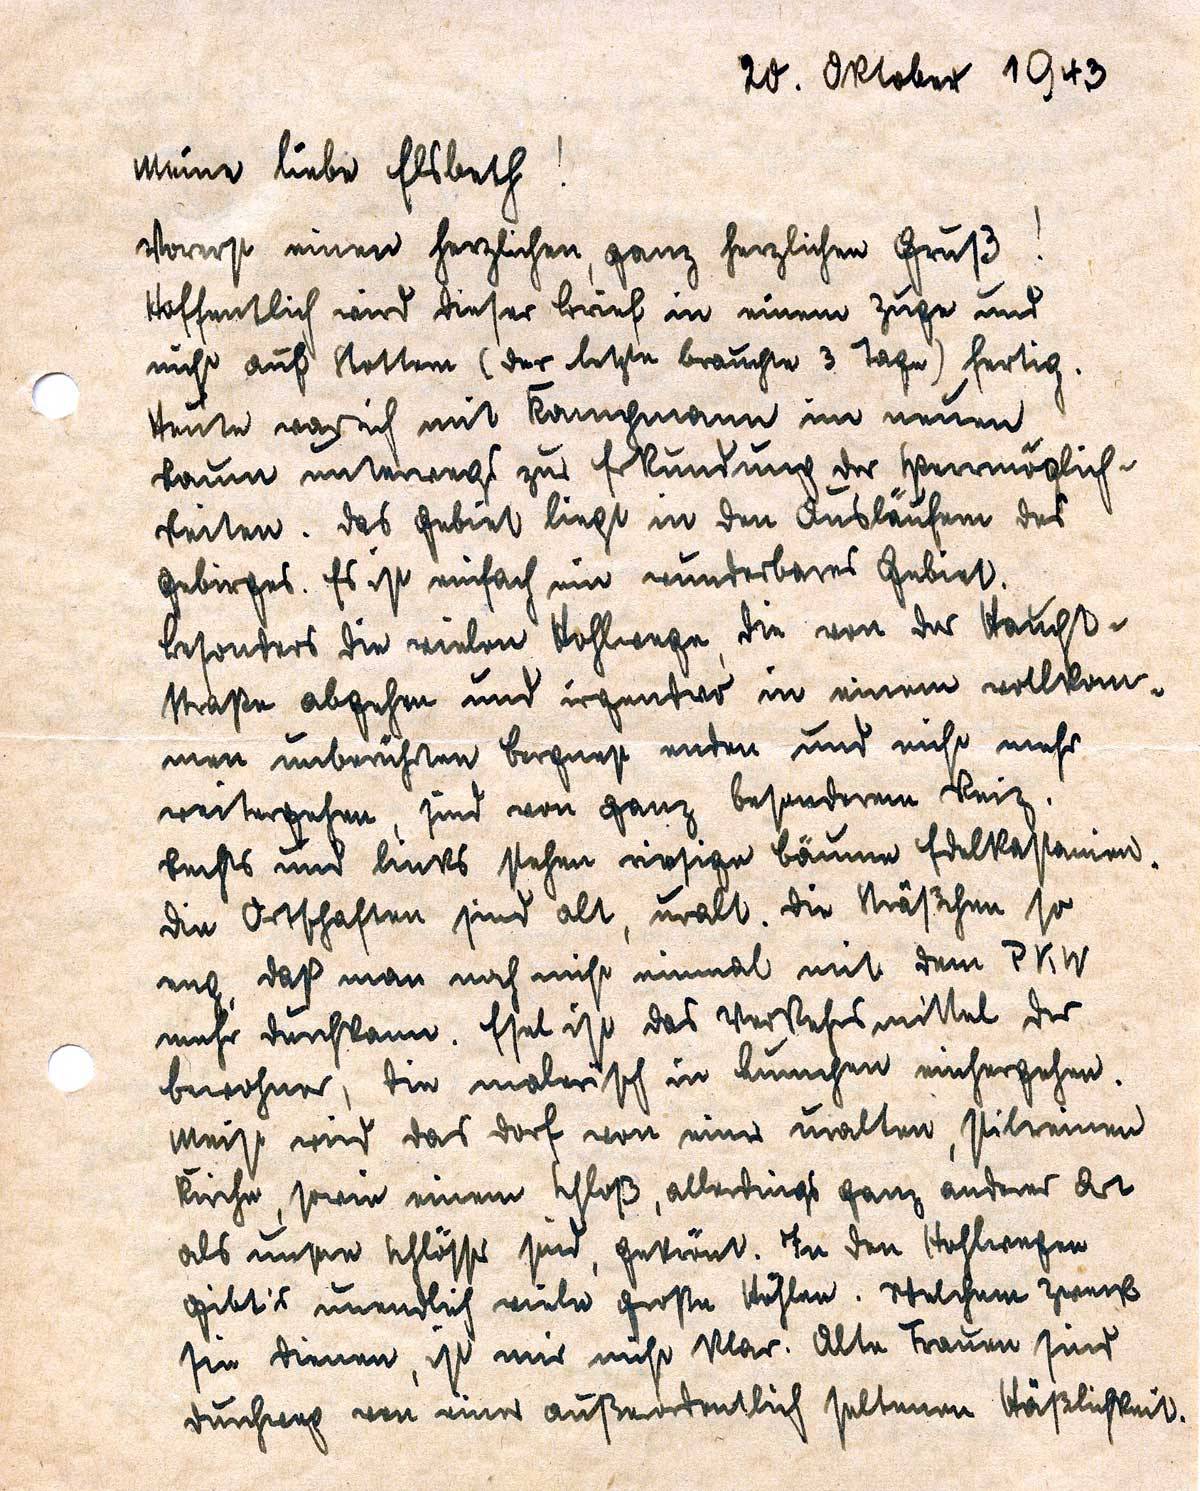 20. Oktober 1943
Meine liebe Elsbeth!
Vorerst einen herzlichen, ganz herzlichen Gruß!
Hoffentlich wird dieser Brief in einem Zuge und
nicht auf Rottem (der letzte brauchte 3 Tage) fertig.
Heute war ich mit Kampmann im neuen
Raum unterwegs zur Erkundung der Sperrmöglich-
keiten. Das Gebiet liegt in den Ausläufern des
Gebirges. Es ist einfach ein wunderbares Gebiet.
Besonders die vielen Hohlwege, die von der Haupt-
straße abgehen und irgendwo in einem vollkom-
men unberührten Bergnest enden und nicht mehr
weitergehen, sind von ganz besonderem Reiz.
Rechts und links stehen riesige Bäume Edelkastanien.
Die Ortschaften sind alt, uralt. Die Sträßchen so
eng, daß man noch nicht einmal mit dem PKW
mehr durchkann. Esel ist das Verkehrsmittel der
Bewohner, die malerisch in Lumpen einhergehen.
Meist wird das Dorf von einer uralten, stilreinen
Kirche, sowie einem Schloß, allerdings ganz anderer Art
als unsere Schlösser sind, gekrönt. In den Hohlwegen
gibt's unendlich viele große Höhlen. Welchem Zweck
sie dienen, ist mir nicht klar. Alte Frauen sind
durchweg von einer außerordentlich seltenen Häßlichkeit.